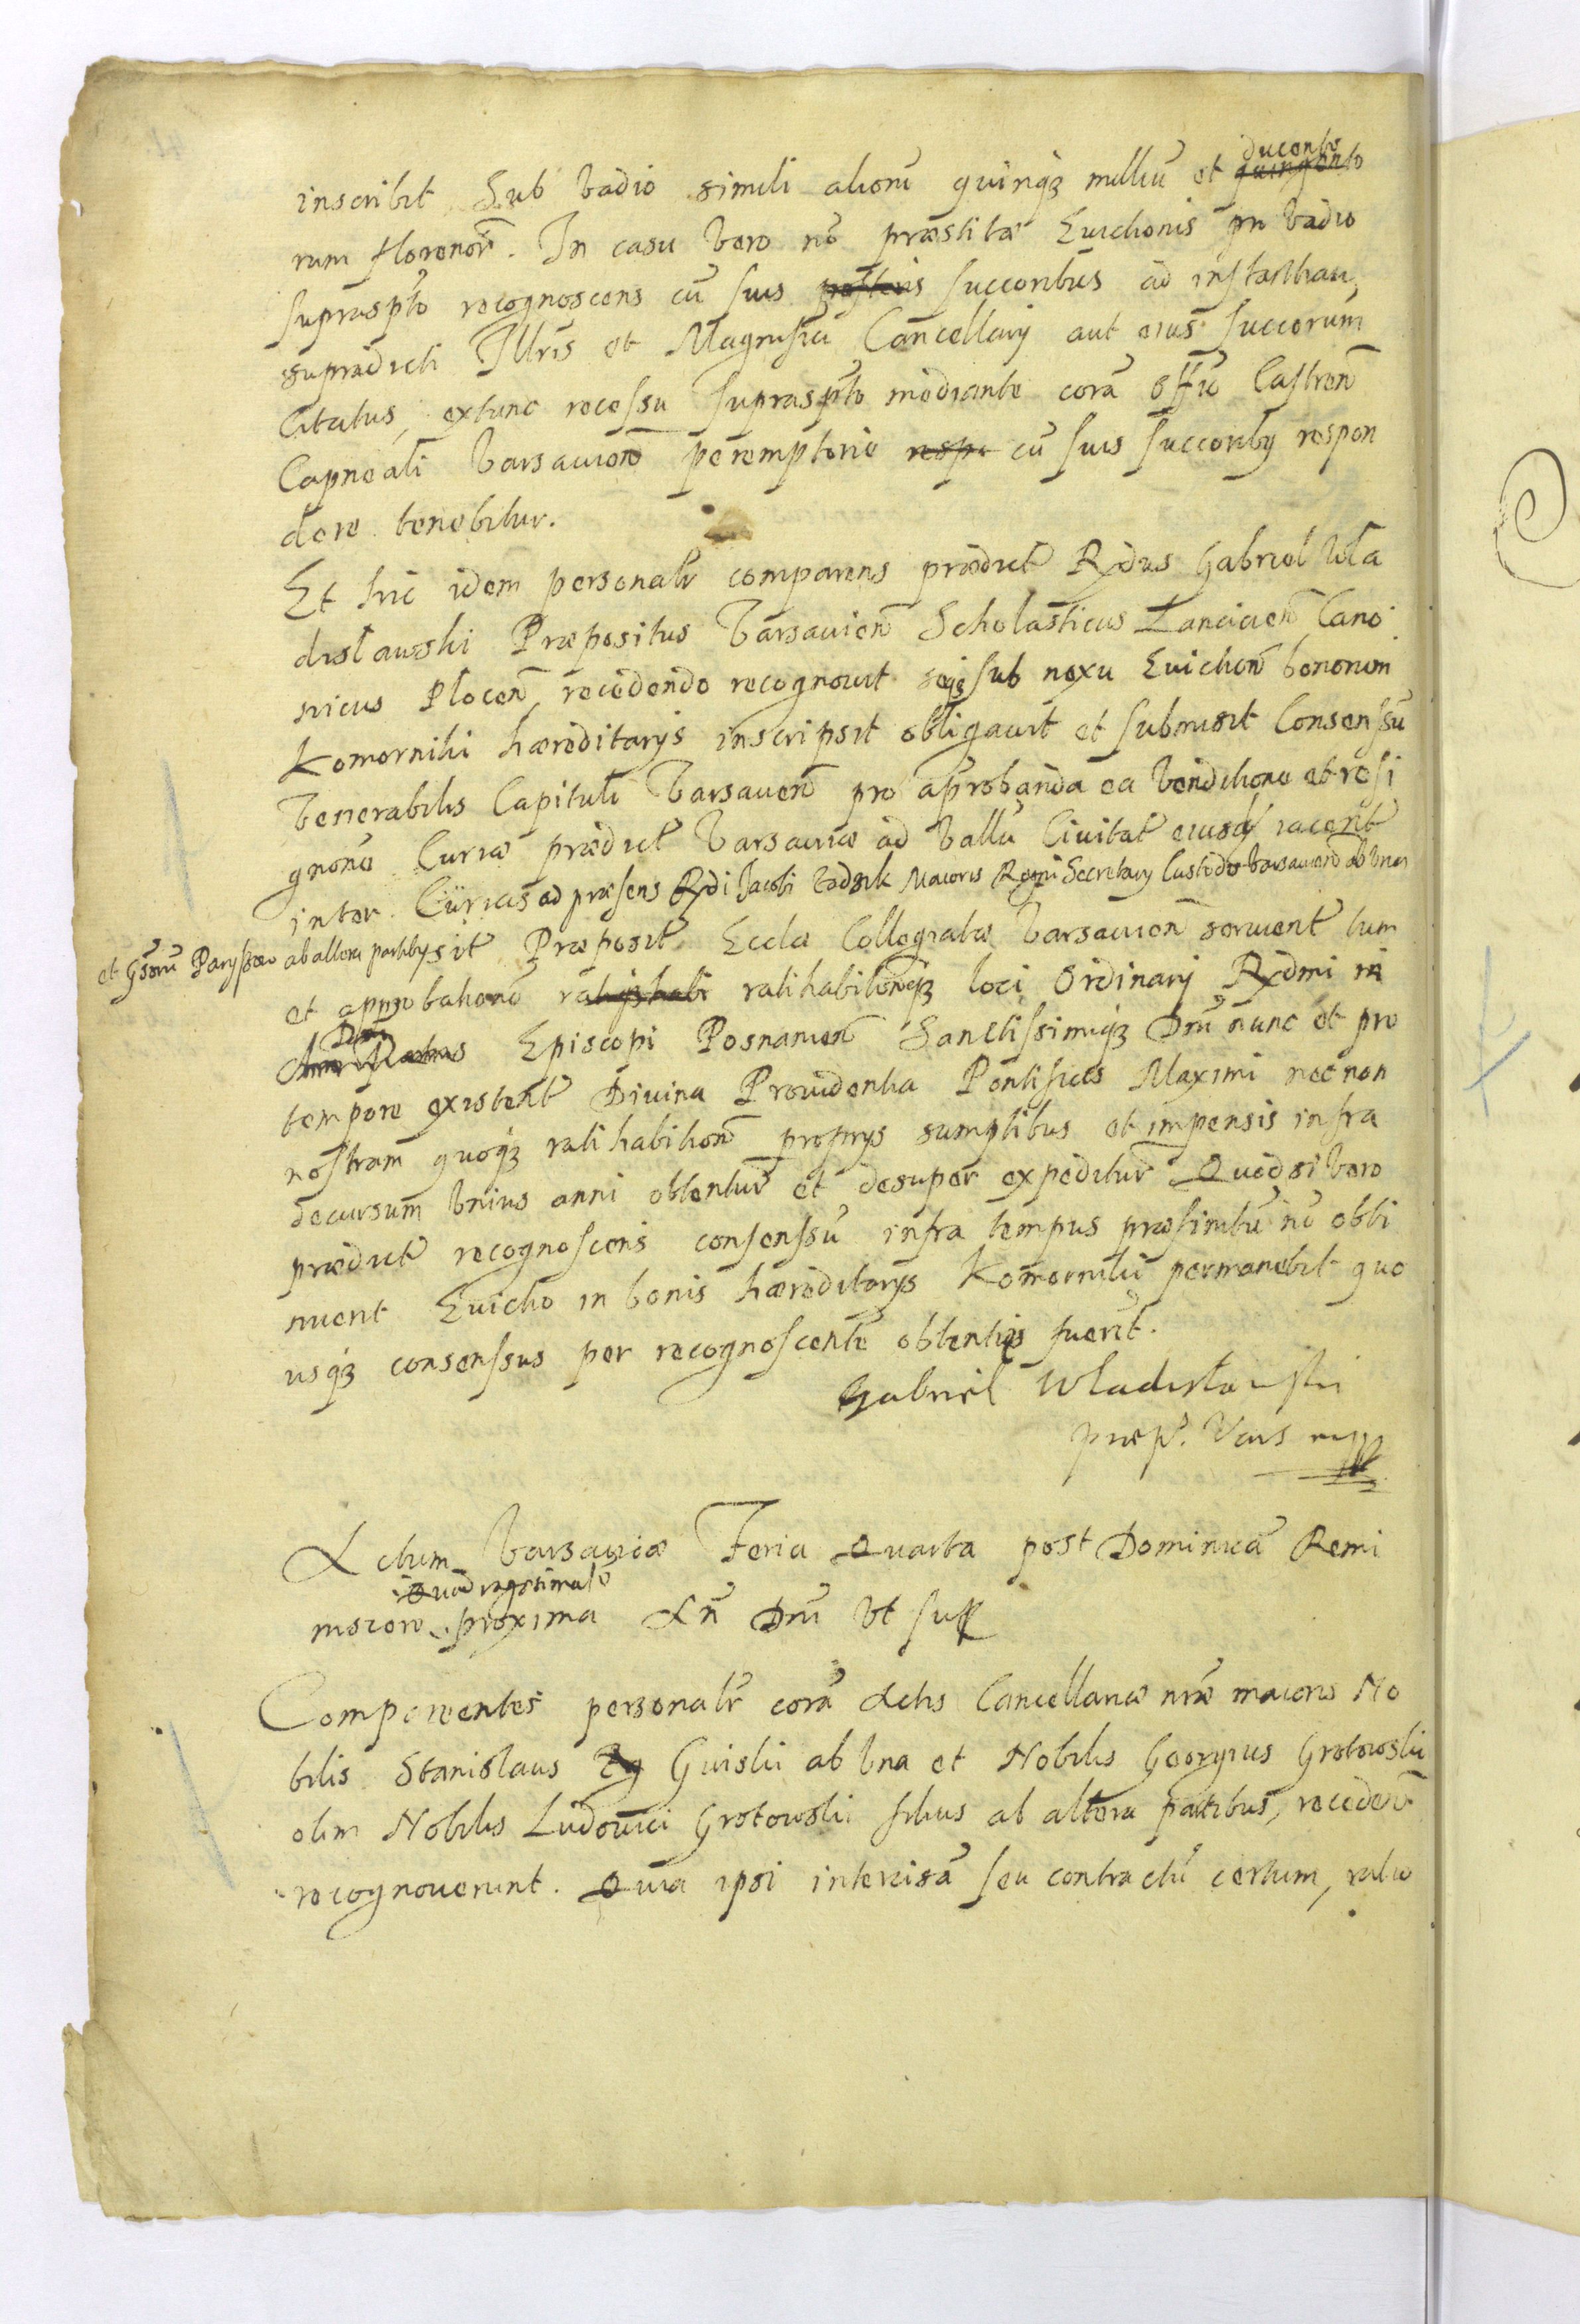 inscribit Sub vadio simili aliorũ quinqꝫ milliũ et quingento ducento
rum florenorũ. In casu vero nõ præstitæ Evictionis pn vadio
suprasptõ recognoscens cũ suis posteris succoribus ad instantiam
supradicti Illris et Magnifici Cancellarij aut eius succorum
Citatus, extunc recessu suprasptõ mediante corã offiõ Castren̄
Capneali Varsavien̄ peremptorie respo cũ suis succoribꝫ respon
dere tenebitur.
Et hic idem personalr̃ comparens prædict̃ Rȷdus Gabriel Wła
disławski Præpositus Varsavien̄ Scholasticus Lancicien̄ Cano
nicus Płocen̄, recedendo recognovit seqꝫ sub nexu Evictioñ bonorum
Komorniki hæreditarijs inscripsit obligavit et submisit Consensũ
Venerabilis Capituli Varsavien̄ pro aprobanda ea venditione et resi
gnõne Curiæ prædict̃ Varsaviæ ad vallũ Civitat̃ eiusdꝫ iacent̃
inter Curias ad præsens Rȷdi Jacobi Zadzik Maioris Regni Secretarij Custodis Varsavien̄ ab una
et Gsorũ Paryssow ab altera partibꝫ sit̃ Præposit̃ Ecclæ Collegiatæ Varsavien̄ servient̃ tum
et approbationẽ ratihabi ratihabitionẽqꝫ loci Ordinarij Rȷdmi in
Dñi Episcopi Posnanien̄ Sanctissimiqꝫ Dñi nunc et pro
tempore existent̃ Divina Providentia Pontificis Maximi necnon
nostram quoqꝫ ratihabitioñ proprijs sumptibus et impensis infra
decursum unius anni obtentur̃ et desuper expeditur̃ Quodsi vero
prædict̃ recognoscens consensũ infra tempus præfinitũ nõ obti
nuerit Evictio in bonis hæreditarijs Komorniki permanebit quo
usqꝫ consensus per recognoscentẽ obtentus fuerit.
Gabriel Władisławski
præp. Vars mpp
Actum Varsaviæ Feria Quarta post Dominicã Remi
niscere Quadragesimalẽ proxima Añ Dñi ut supr
Comparentes personalr̃ corã Actis Cancellariæ nr̃æ maioris No
bilis Stanislaus Zg Guiski ab una et Nobilis Georgius Grotowski
olim Nobilis Ludovici Grotowski filius ab altera partibus, recedent̃
recognoverunt. Quia ipsi intercisã seu contractũ certum, ratio